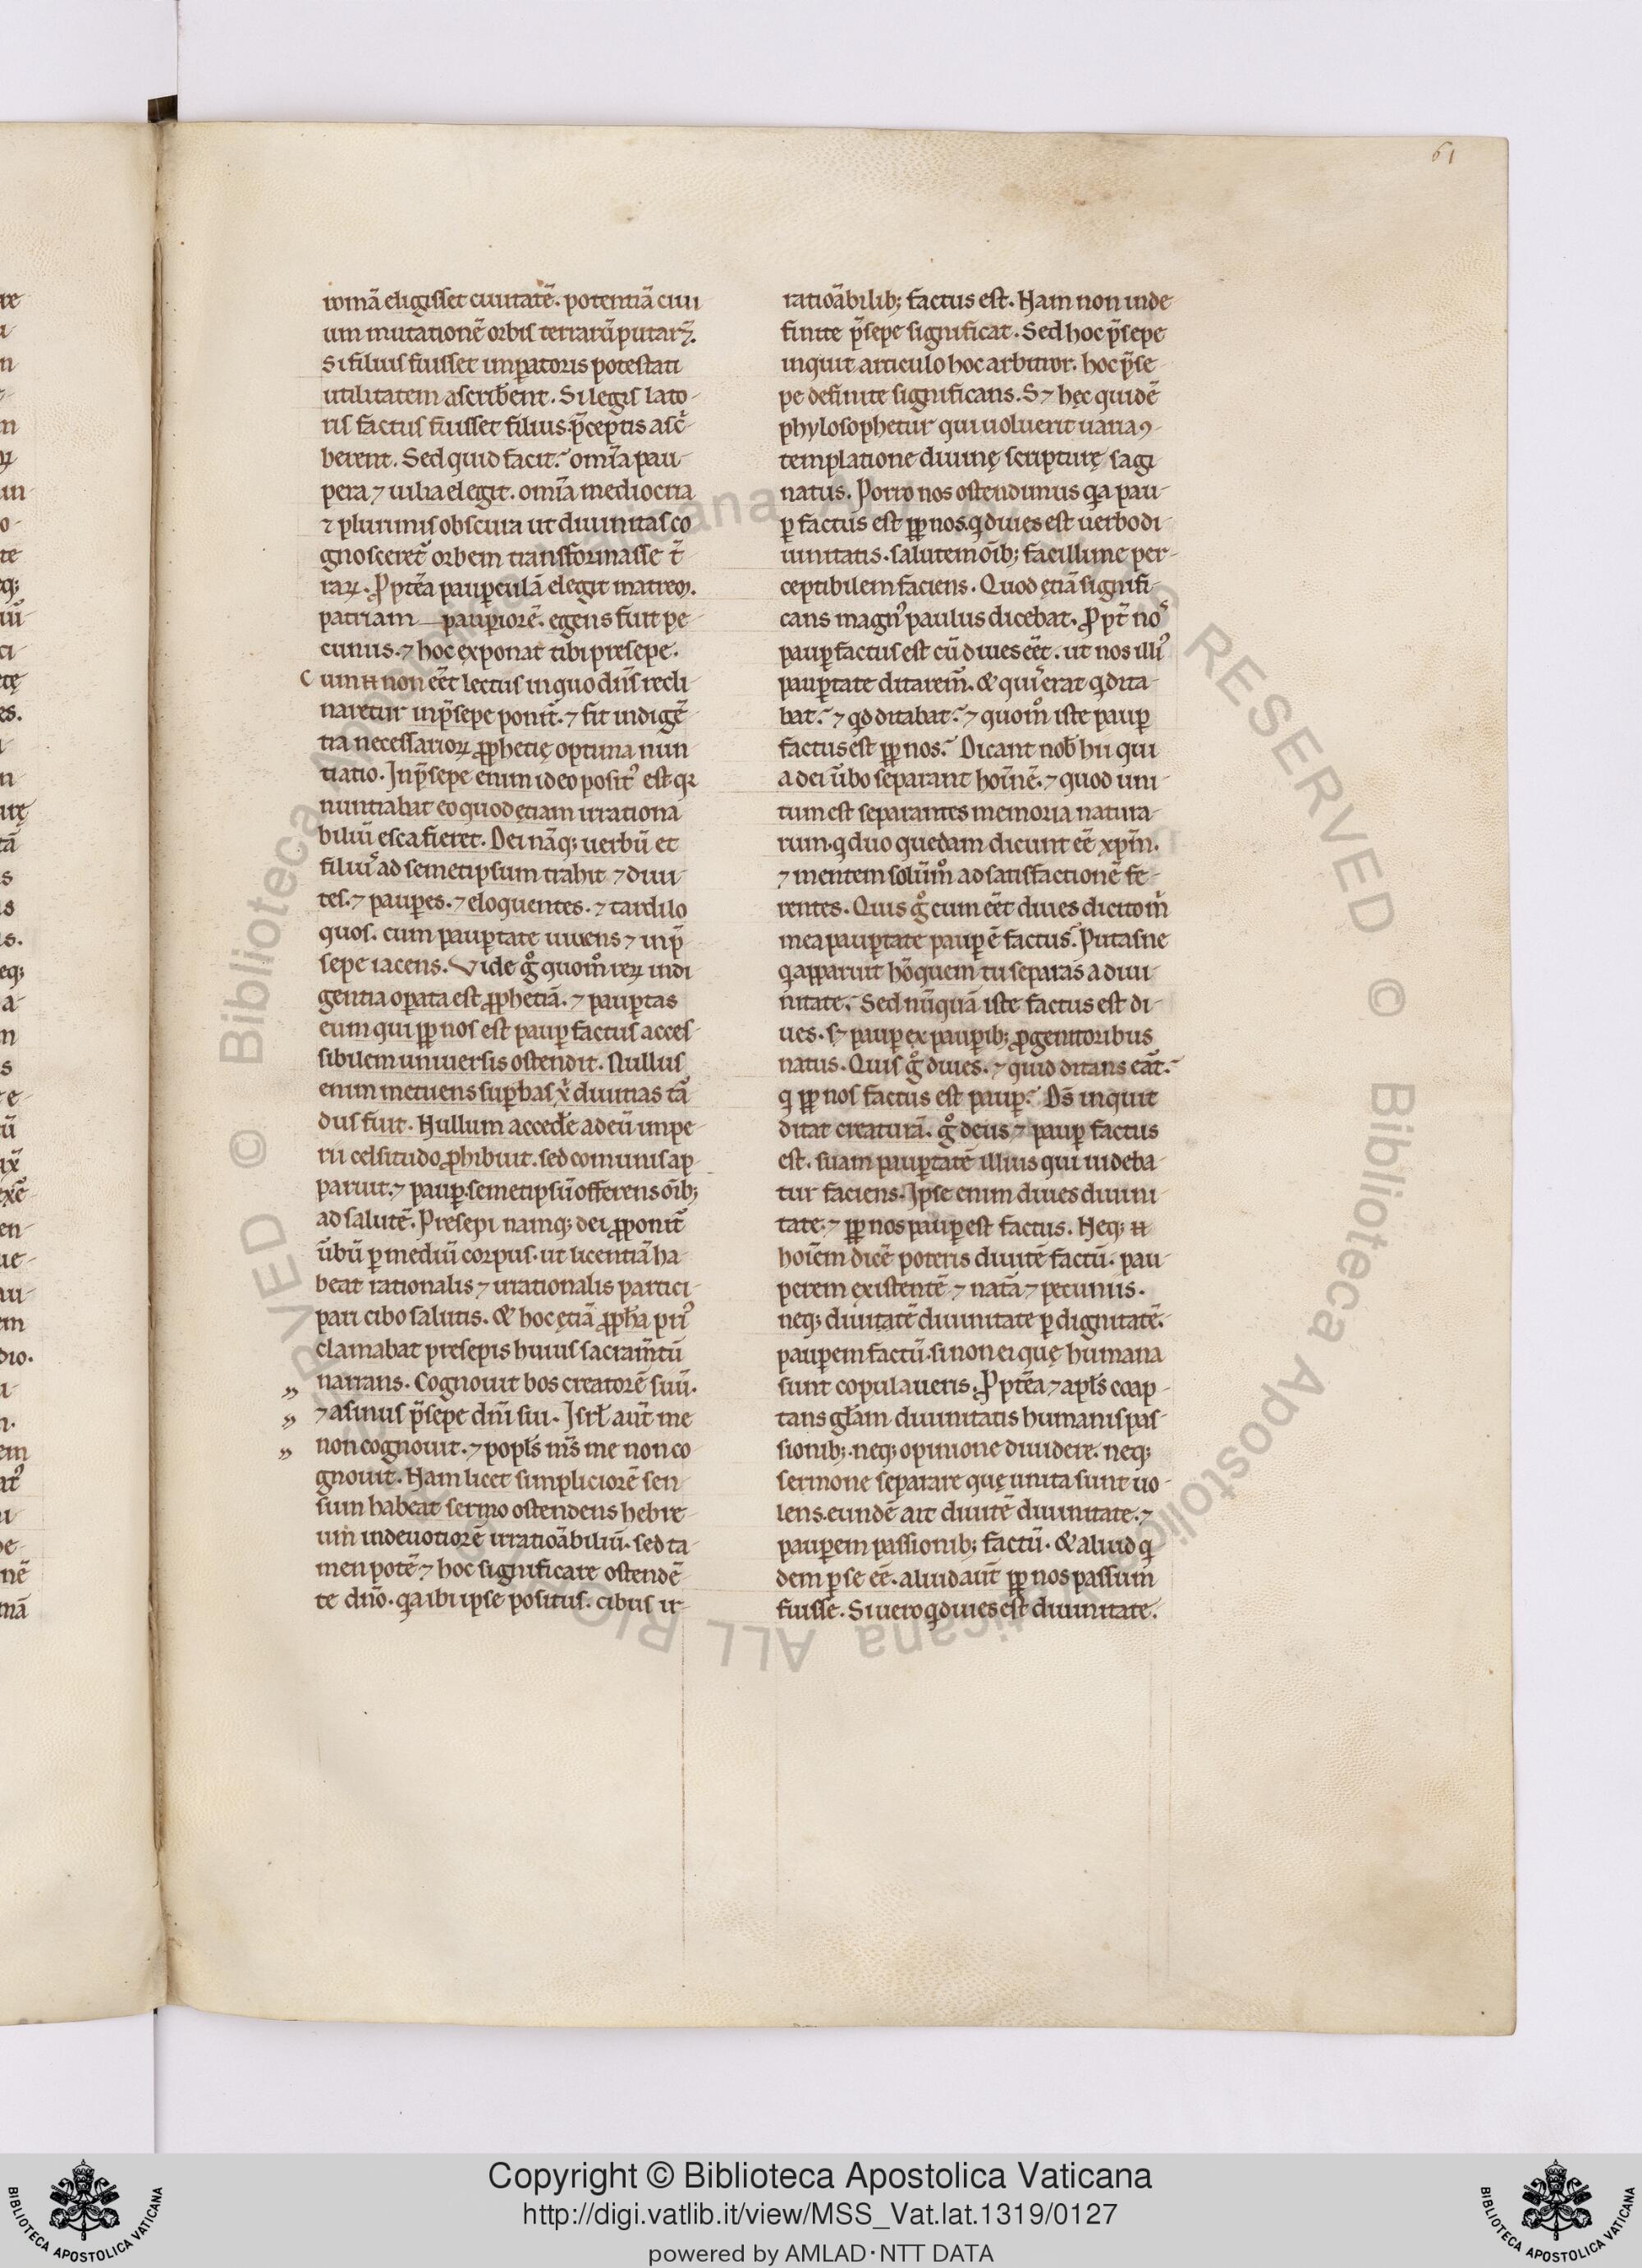 61
romã eligisset ciuitatẽ. potentiã ciui
um mutationẽ orbis terrarũ putarẽt.
Si filius fuisset imp̲atoris potestati
utilitatem ascriberent. Si legis lato-
ris factus fuisset filius. p̃ceptis asc̾i-
berent. Sed quid facit? om̃ia pau-
pera ⁊ uilia elegit. om̃ia mediocria
⁊ plurimis obscura ut diuinitas co
gnosceret᷑ orbem transformasse t̃
raꝝ. Ꝓpt̃ea paup̲culã elegit matrem.
patriam paup̲iorẽ. egens fuit pe-
cuniis. ⁊ hoc exponat tibi presepe.
Cum n̄ non eẽt lectus in quo dñs recli-
naretur in p̃sepe ponit᷑. ⁊ fit indigẽ-
tia necessarioꝝ ꝓphetię optima nun
tiatio. In p̃sepe enim ideo posit᷒ est q̾
nuntiabat eo quod etiam irrationa
biliũ esca fieret. Dei nãq; uerbũ et
filius ad semetipsum trahit ⁊ diui-
tes. ⁊ paup̲es. ⁊ eloquentes. ⁊ tardilo
quos. cum paup̲tate uiuens ⁊ in p̃
sepe iacens. Vide gͦ quom̊ reꝝ indi
gentia op̲ata est ꝓphetiã. ⁊ paup̲tas
eum qui ꝓp nos est paup̲ factus acces-
sibilem uniuersis ostendit. Nullus
enim metuens sup̲bas x̾ diuitias tar̃
dus fuit. Nullum accedẽ ad eũ impe-
rii celsitudo ꝓhibuit. sed comunis ap-
paruit. ⁊ paup̲. semetipsũ offerens oĩb;
ad salutẽ. Presepi namq; dei ꝓponit᷑
ũbũ p̲ mediũ corpus. ut licentiã ha-
beat rationalis ⁊ irrationalis partici-
pari cibo salutis. & hoc ętiã ꝓph̃a pri᷒
clamabat presepis huius sacram̃tũ
„ narrans. Cognouit bos creatorẽ suũ.
„ ⁊ asinus p̃sepe dñi sui. Isrł aũt me
„ non cognouit. ⁊ popłs m̃s me non co
gnouit. Nam licet simpliciorẽ sen-
sum habeat sermo ostendens hebre-
um indeuotiorẽ irratiõabiliũ. sed ta-
men potẽ ⁊ hoc significare ostendẽ-
te dño. q̃a ibi ipse positus. cibus ir-
ratiõabilib; factus est. Nam non inde
finite p̃sepe significat. Sed hoc p̃sepe
inquit articulo hoc arbitror. hoc p̃se-
pe definite significans. S⁊ hęc quidẽ
phylosophetur qui uoluerit uaria ꝯ-
templatione diuinę scripturę sagi
natus. Porro nos ostendimus q̃a pau-
p̲ factus est ꝓp nos. q̃ diues est uerbo di-
uinitatis. salutem oĩb; facillime per-
ceptibilem faciens. Quod ętiã signifi-
cans magn᷒ paulus dicebat. Ꝓpt̃ nos
paup̲ factus est cũ diues eẽt. ut nos illi᷒
paup̲tate ditarem̃. & quis erat q̃ dita-
bat? ⁊ q̃d ditabat? ⁊ quom̊ iste paup̲
factus est ꝓp nos? Dicant nob̃ hii qui
a dei ũbo separant hoĩnẽ. ⁊ quod uni-
tum est separantes memoria natura-
rum. q̃ duo quedam dicunt eẽ xp̃m.
⁊ mentem solũm̊ ad satisfactionẽ fe-
rentes. Quis gͦ cum eẽt diues dicito m̾
mea paup̲tate paup̲ ẽ factus? Putasne
q̃ apparuit hõ quem tu separas a diui-
nitate? Sed nũquã iste factus est di-
ues. s⁊ paup̲ ex paup̲ib; ꝓgenitoribus
natus. Quis gͦ diues. ⁊ quid ditans erãt?
q̃ ꝓp nos factus est paup̲? Ds̃ inquit
ditat creaturã. gͦ deus ⁊ paup̲ factus
est. suam paup̲tatẽ illius qui uideba-
tur faciens. Ipse enim diues diuini-
tate. ⁊ ꝓp nos paup̲ est factus. Neq; n̄
hoĩem dicẽ poteris diuitẽ factũ. pau-
perem existentẽ ⁊ natã ⁊ pecuniis.
neq; diuitatẽ diuinitate p̲ dignitatẽ.
paup̲em factũ. si non ei quę humana
sunt copulaueris. Ꝓpt̃ea ⁊ apłs coap-
tans głam diuinitatis humanis pas-
sionib;. neq; opinione diuidere. neq;
sermone separare quę unita sunt uo-
lens. eundẽ ait diuitẽ diuinitate. ⁊
paup̲em passionib; factũ. & aliud q̾-
dem p̲ se eẽ. aliud aũt ꝓp nos passum
fuisse. Si uero q̃ diues est diuinitate.
Copyright © Biblioteca Apostolica Vaticana
http://digi.vatlib.it/view/MSS_Vat.lat.1319/0127
powered by AMLAD·NTT DATA
BIBLIOTECA APOSTOLICA VATICANA
BIBLIOTECA APOSTOLICA VATICANA